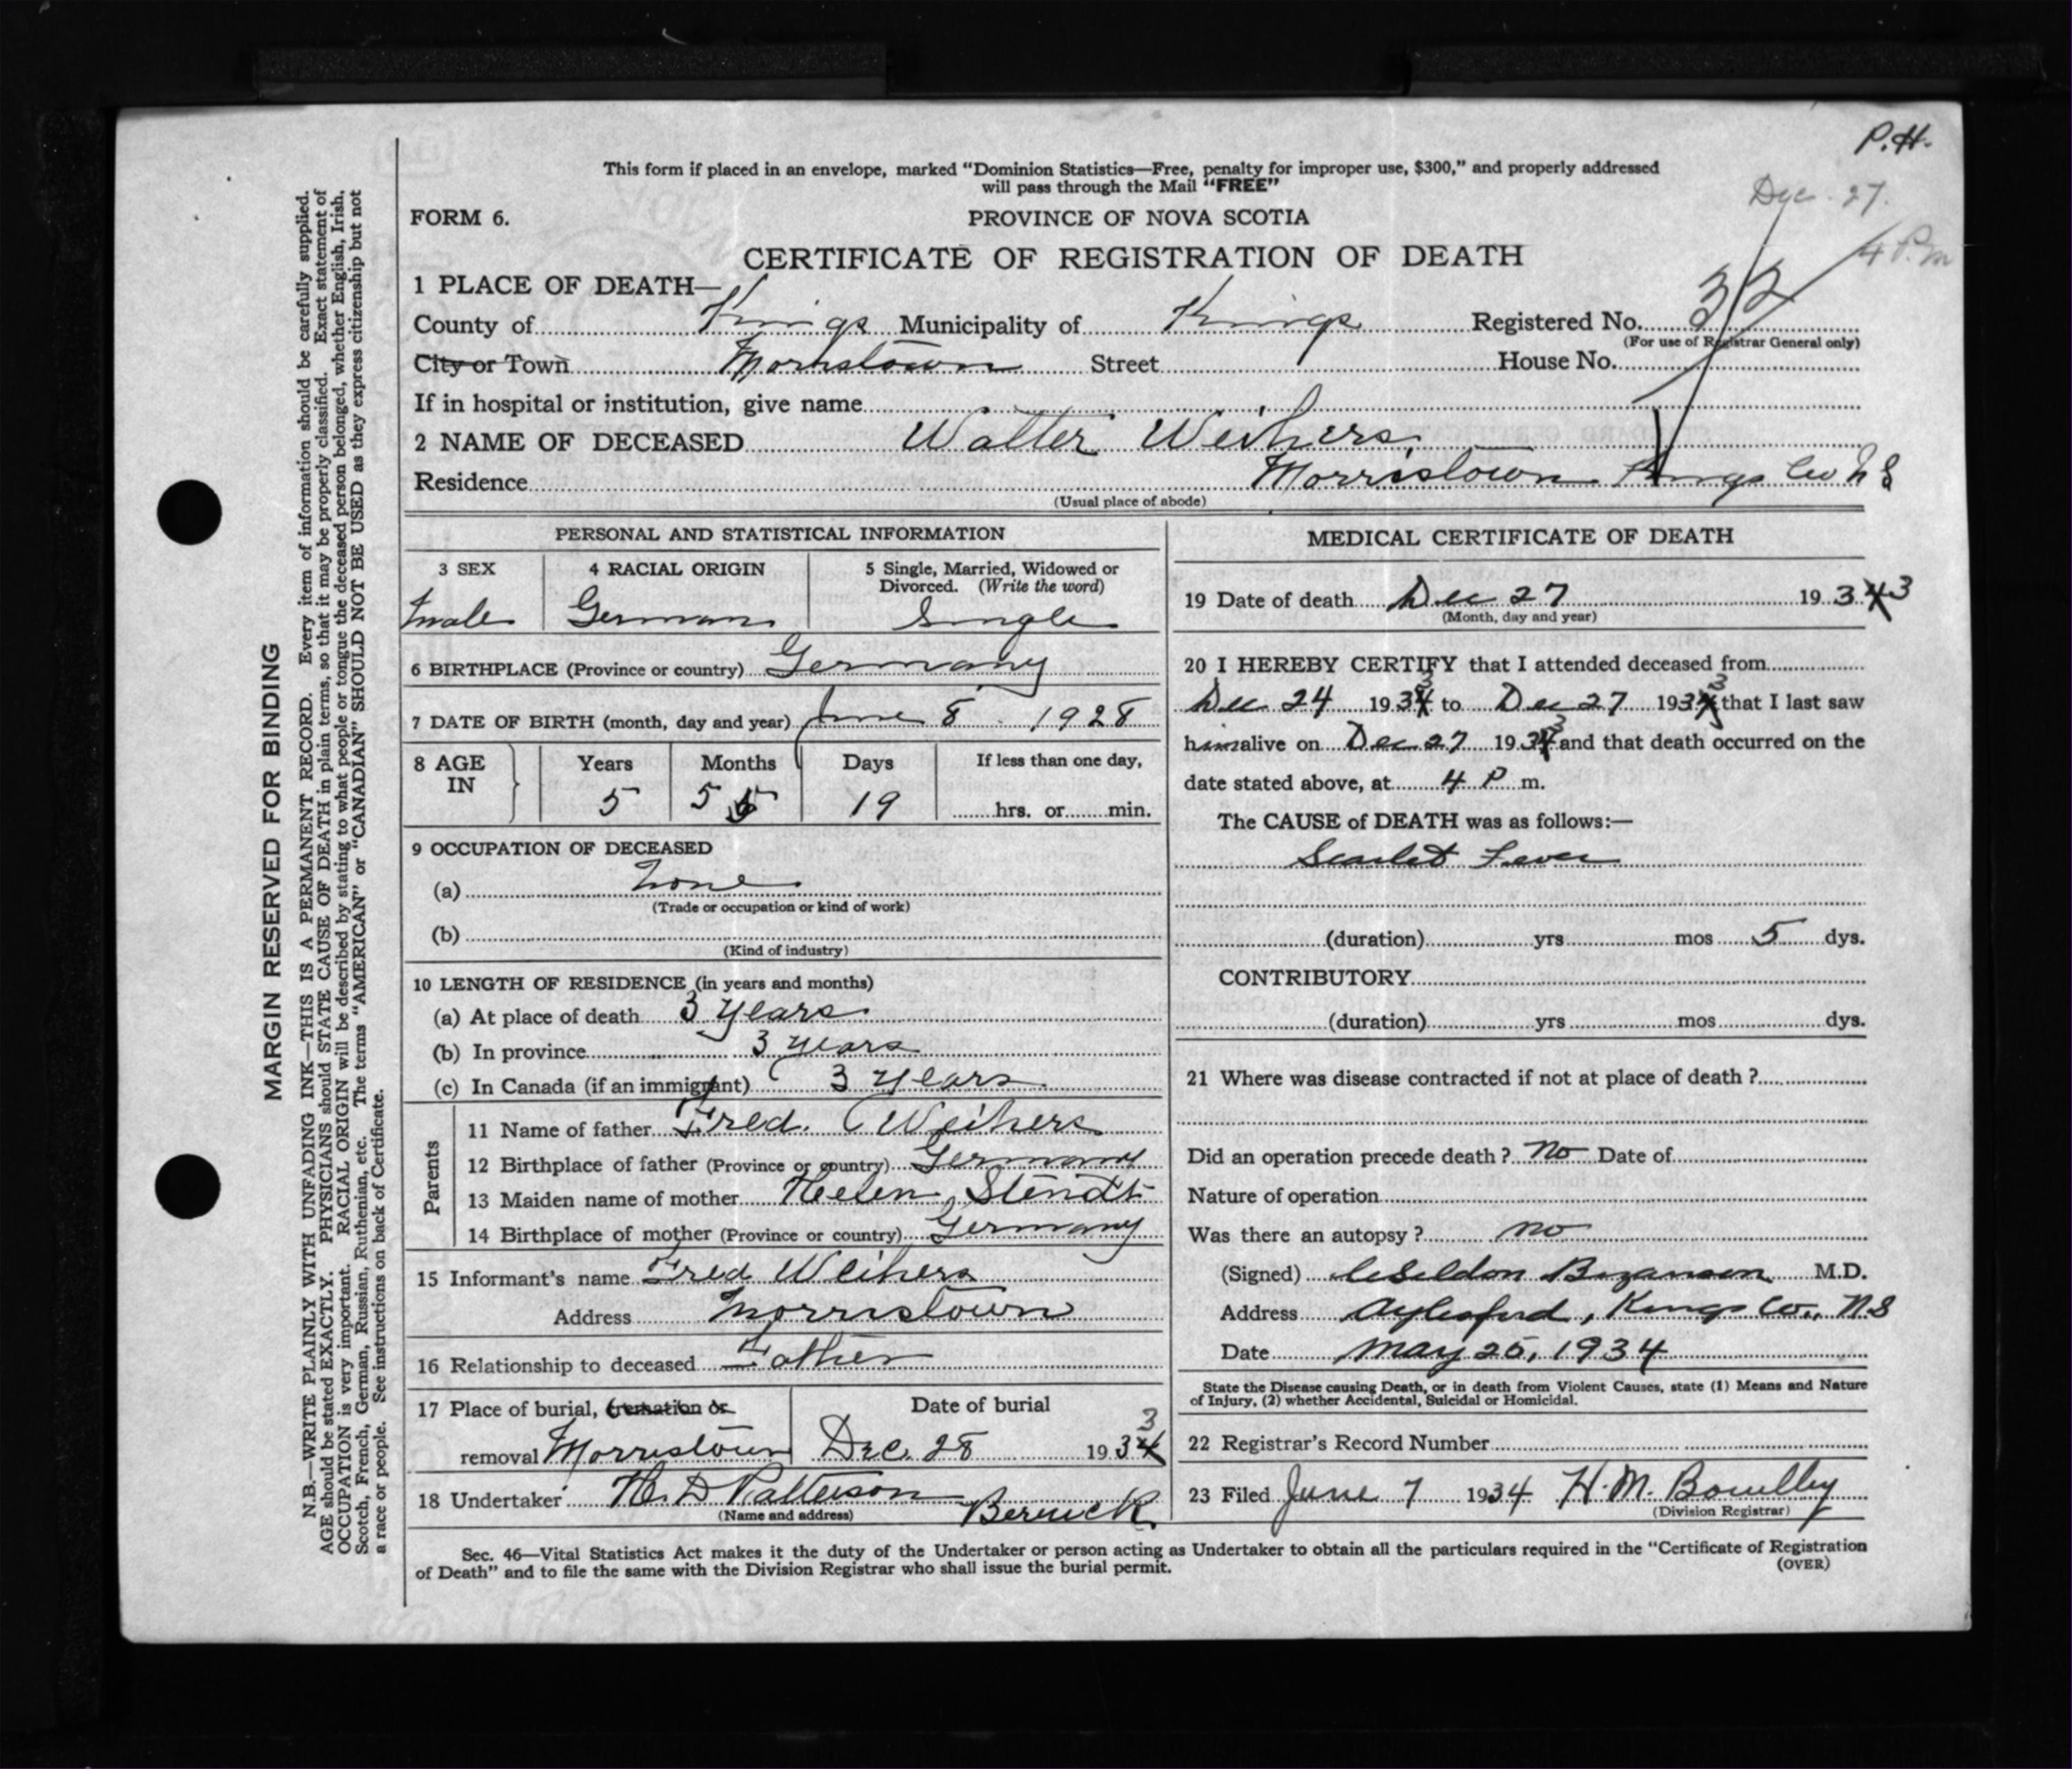 P.H.
Dec. 27.
4 P.m
This form if placed in an envelope, marked "Dominion Statistics—Free, penalty for improper use, $300," and properly addressed
will pass through the Mail "FREE"
FORM 6.
PROVINCE OF NOVA SCOTIA
CERTIFICATE OF REGISTRATION OF DEATH
1 PLACE OF DEATH—
County of Kings Municipality of Kings Registered No. 32
(For use of Registrar General only)
City or Town Morristown Street House No.
If in hospital or institution, give name
2 NAME OF DECEASED Walter Weihers
Residence Morristown Kings Co N S
(Usual place of abode)
PERSONAL AND STATISTICAL INFORMATION
3 SEX 4 RACIAL ORIGIN 5 Single, Married, Widowed or
Divorced. (Write the word)
male German Single
6 BIRTHPLACE (Province or country) Germany
7 DATE OF BIRTH (month, day and year) June 8 1928
8 AGE IN Years Months Days If less than one day,
5 5 19 hrs. or min.
9 OCCUPATION OF DECEASED
(a) None
(Trade or occupation or kind of work)
(b)
(Kind of industry)
10 LENGTH OF RESIDENCE (in years and months)
(a) At place of death 3 years
(b) In province 3 years
(c) In Canada (if an immigrant) 3 years
Parents
11 Name of father Fred. Weihers
12 Birthplace of father (Province or country) Germany
13 Maiden name of mother Helen Stendt
14 Birthplace of mother (Province or country) Germany
15 Informant's name Fred Weihers
Address Morristown
16 Relationship to deceased Father
17 Place of burial, cremation or Date of burial
removal Morristown Dec. 28 1934 3
18 Undertaker H. D Patterson
(Name and address) Berwick
MEDICAL CERTIFICATE OF DEATH
19 Date of death Dec 27 1934 3
(Month, day and year)
20 I HEREBY CERTIFY that I attended deceased from
Dec 24 1934 3 to Dec 27 1934 3 that I last saw
him alive on Dec 27 1934 3 and that death occurred on the
date stated above, at 4 P m.
The CAUSE of DEATH was as follows:—
Scarlet Fever
(duration) yrs mos 5 dys.
CONTRIBUTORY
(duration) yrs mos dys.
21 Where was disease contracted if not at place of death ?
Did an operation precede death ? no Date of
Nature of operation
Was there an autopsy ? no
(Signed) Bezanson M.D.
Address Aylesford, Kings Co., N.S
Date May 25, 1934
State the Disease causing Death, or in death from Violent Causes, state (1) Means and Nature
of Injury, (2) whether Accidental, Suicidal or Homicidal.
22 Registrar's Record Number
23 Filed June 7 1934 H. M.
(Division Registrar)
Sec. 46—Vital Statistics Act makes it the duty of the Undertaker or person acting as Undertaker to obtain all the particulars required in the "Certificate of Registration
of Death" and to file the same with the Division Registrar who shall issue the burial permit.
(OVER)
MARGIN RESERVED FOR BINDING
N.B.—WRITE PLAINLY WITH UNFADING INK—THIS IS A PERMANENT RECORD. Every item of information should be carefully supplied.
AGE should be stated EXACTLY. PHYSICIANS should STATE CAUSE OF DEATH in plain terms, so that it may be properly classified. Exact statement of
OCCUPATION is very important. RACIAL ORIGIN will be described by stating to what people or tongue the deceased person belonged, whether English, Irish,
Scotch, French, German, Russian, Ruthenian, etc. The terms "AMERICAN" or "CANADIAN" SHOULD NOT BE USED as they express citizenship but not
a race or people. See instructions on back of Certificate.